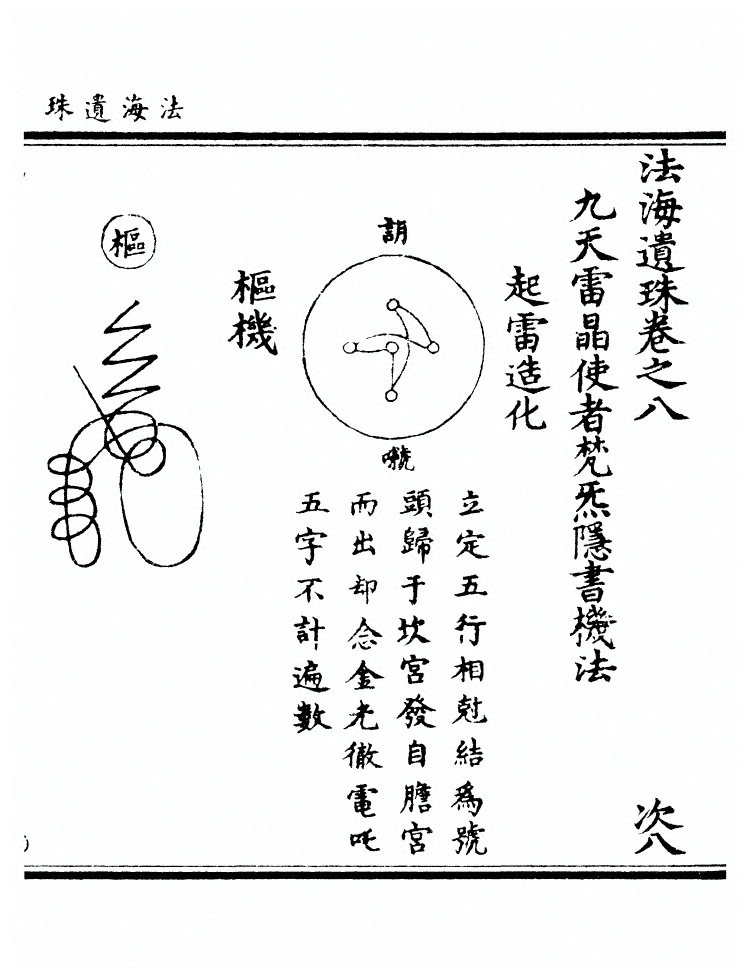 法海遺珠
法海遺珠卷之八
次八
九天雷晶使者梵炁隱書機法
起雷造化
立定五行相尅結爲號
頭歸于坎宮發自膽宮
而出却念金光徹電吒
五字不計遍數
樞機
樞